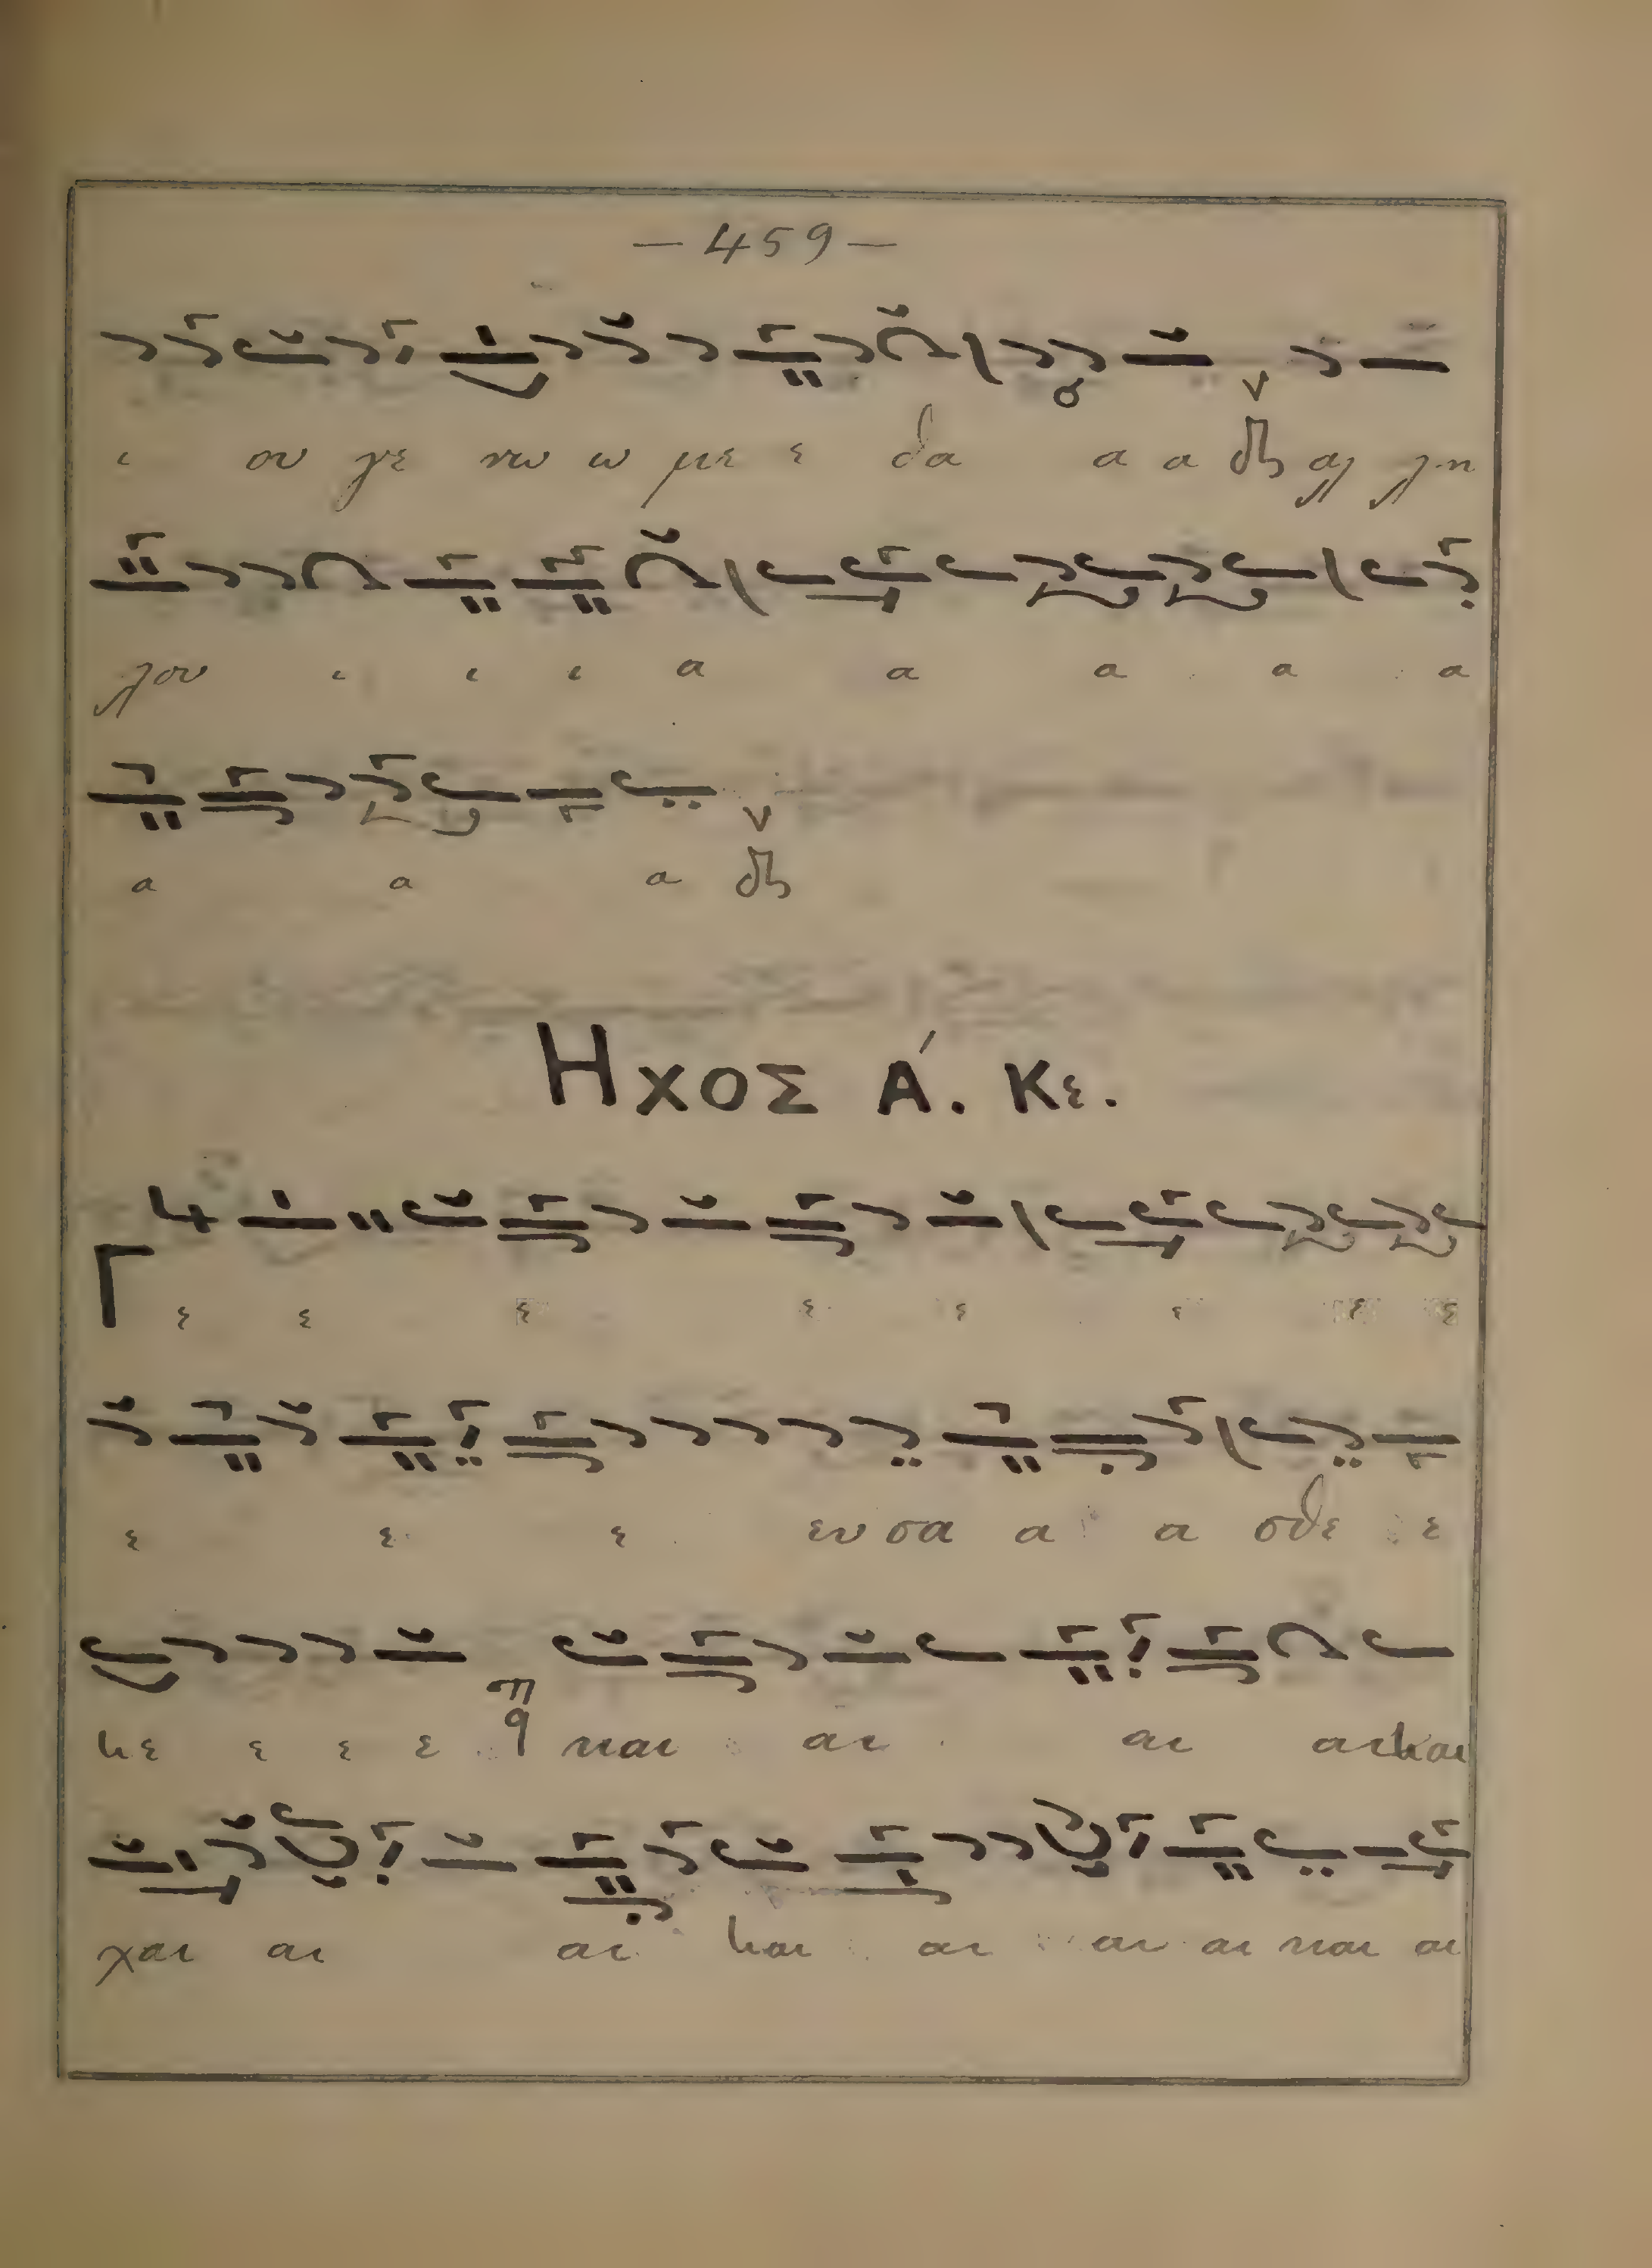 — 459 —
ι ου γε νω ω με ε θα α α δι αλ λη
λου ι ι ι α α α α α
α α α δι
Ηχος Α´. Κε.
Γ ε ε ε ε ε ε ε ε
ε ε ε ευ σα α α σθε ε
κε ε ε ε q και αι αι αι και
χαι αι αι και αι αι αι και αι